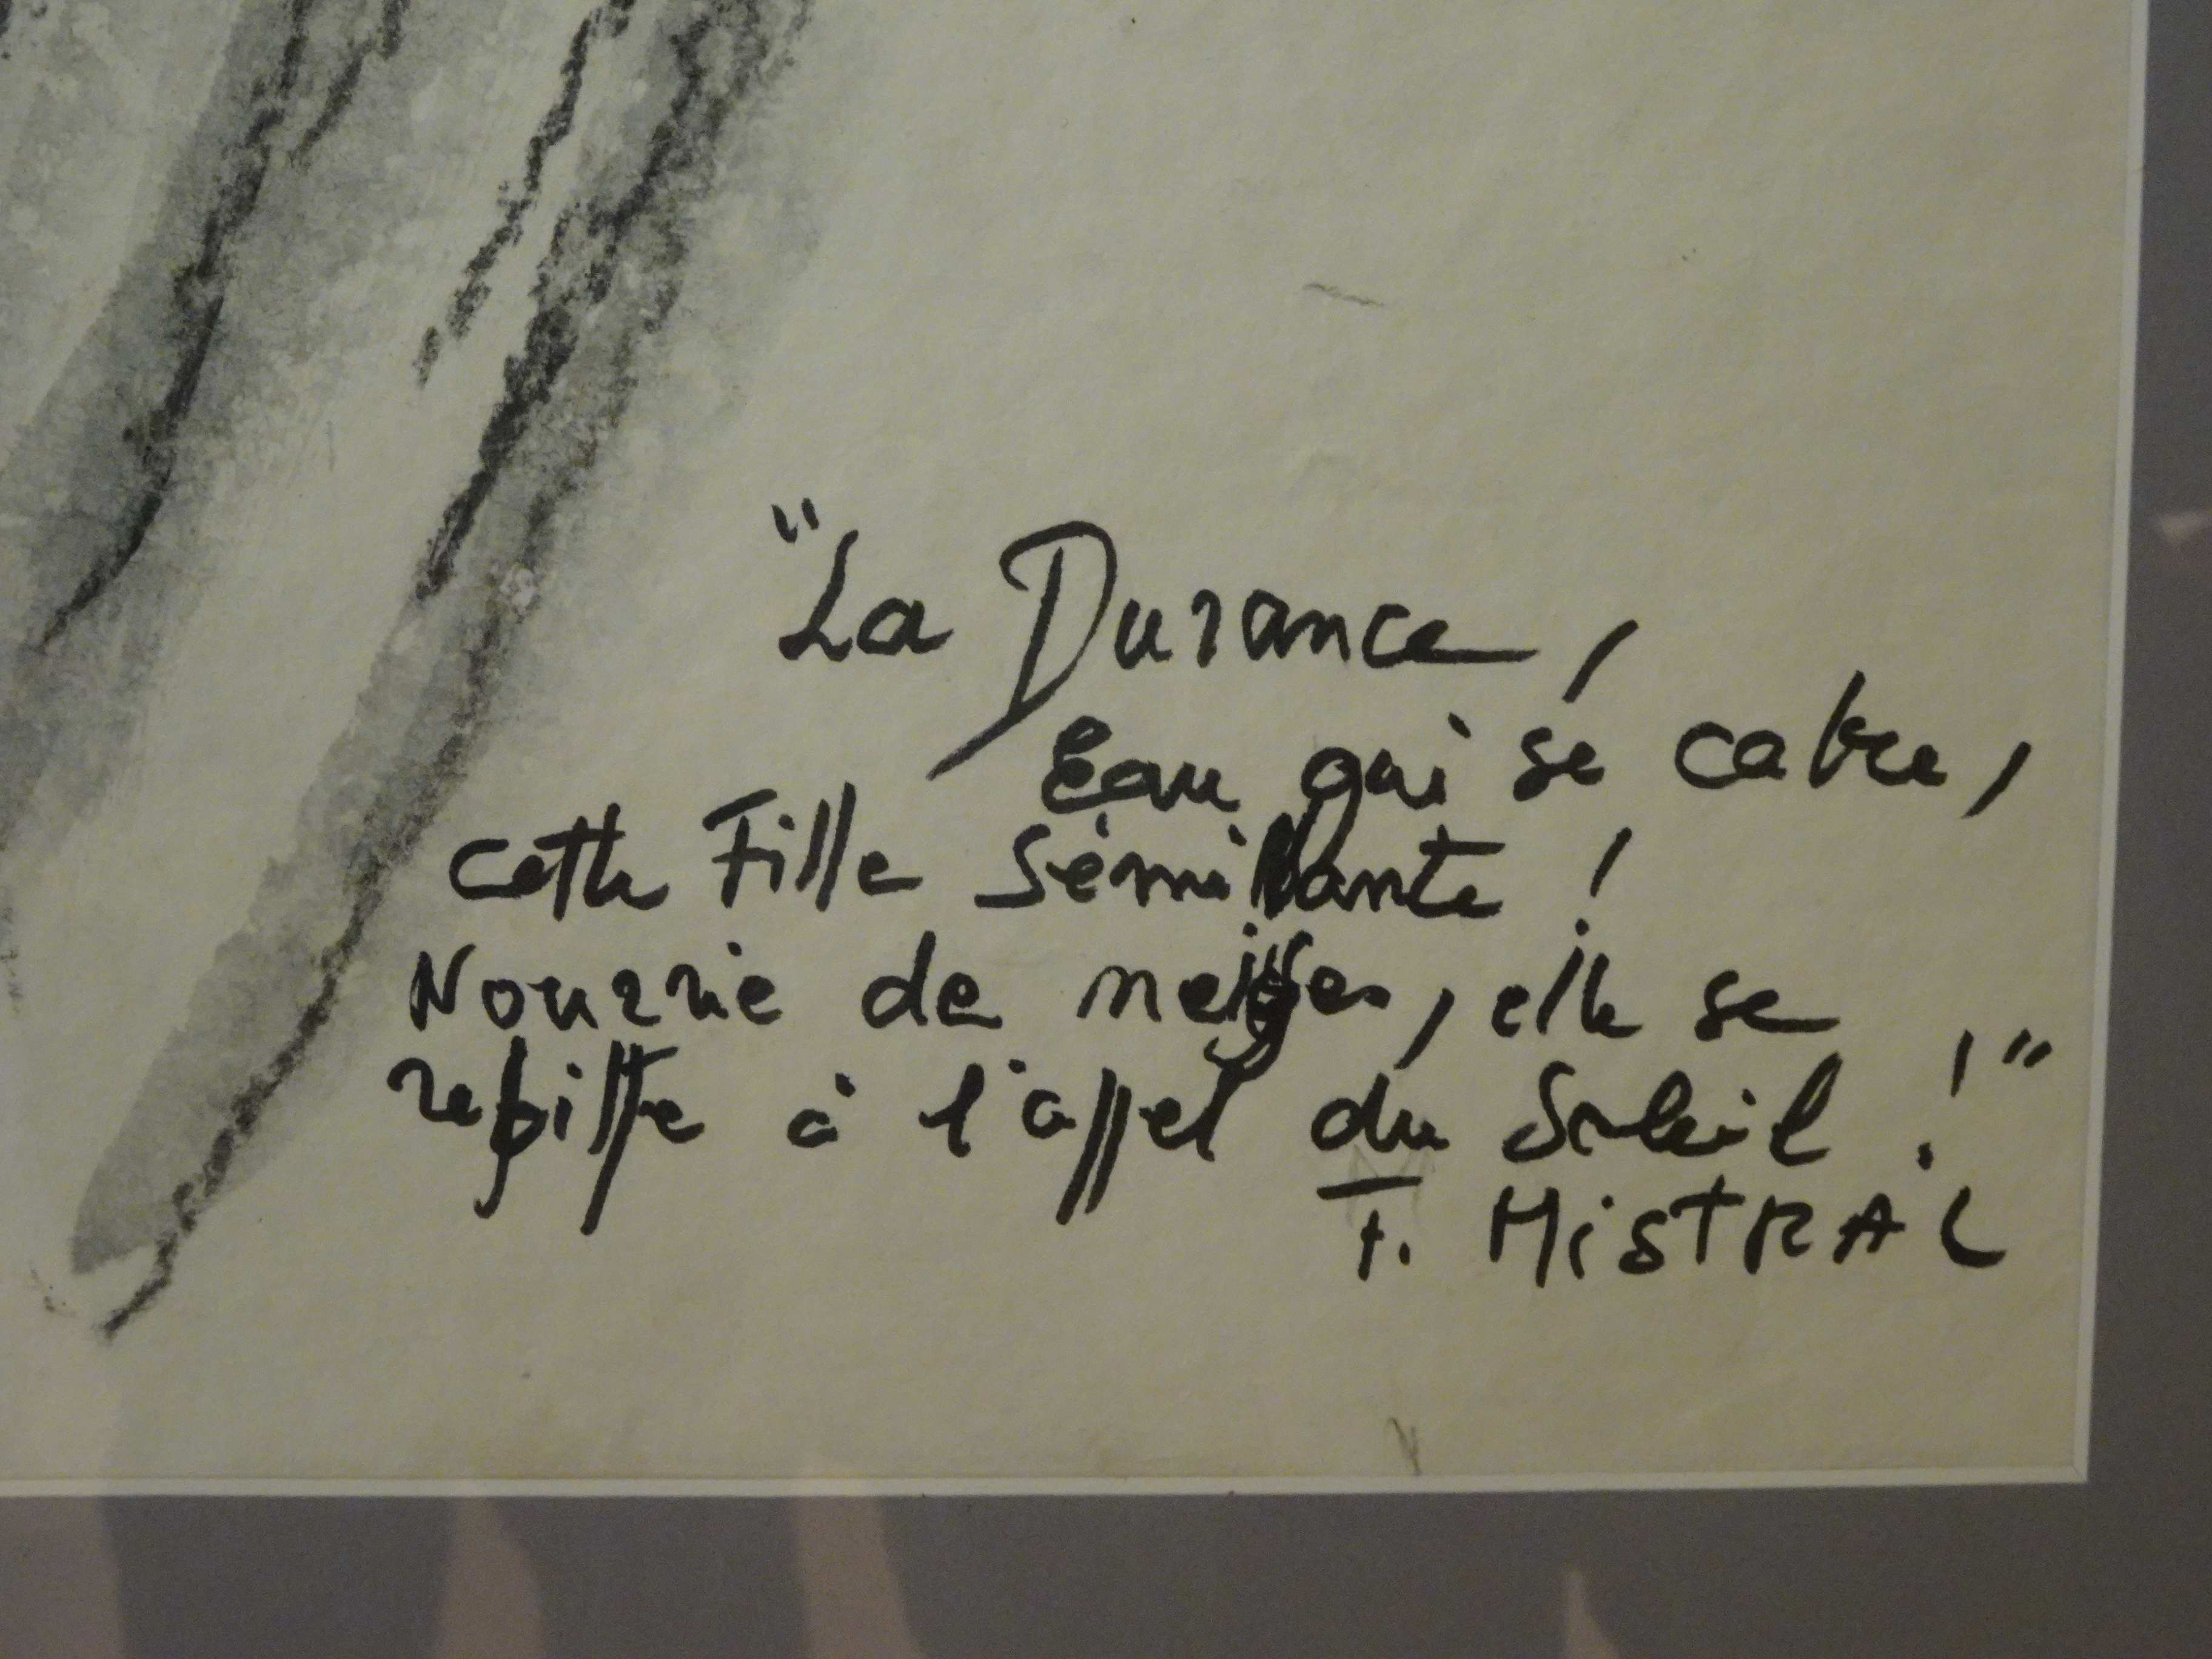 "La Durance,
Eau qui se cabre,
cette Fille Sémillante !
Nourrie de neiges, elle se
rebiffe à l'appel du Soleil !"
F. MiSTRAL